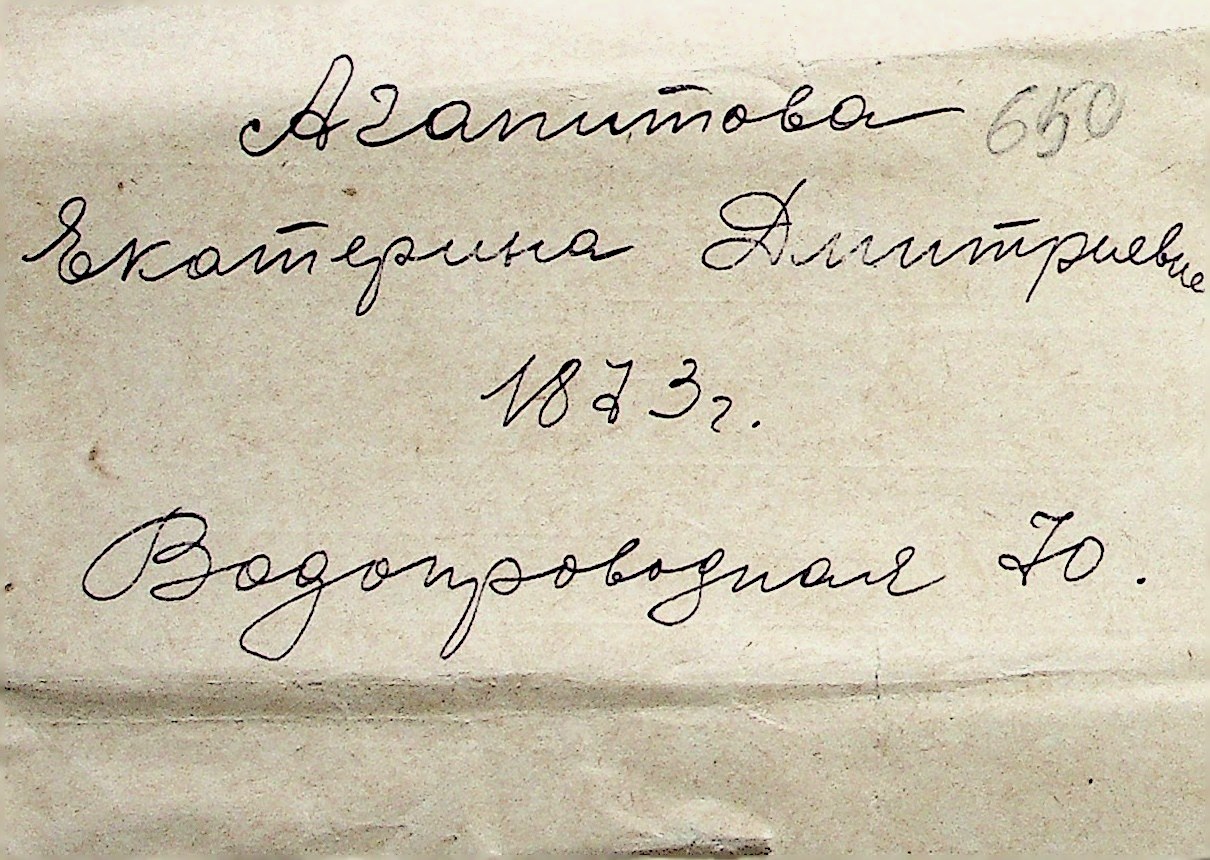 Агапитова 650
Екатерина Дмитриевне
1873г.
Водопроводная 70.